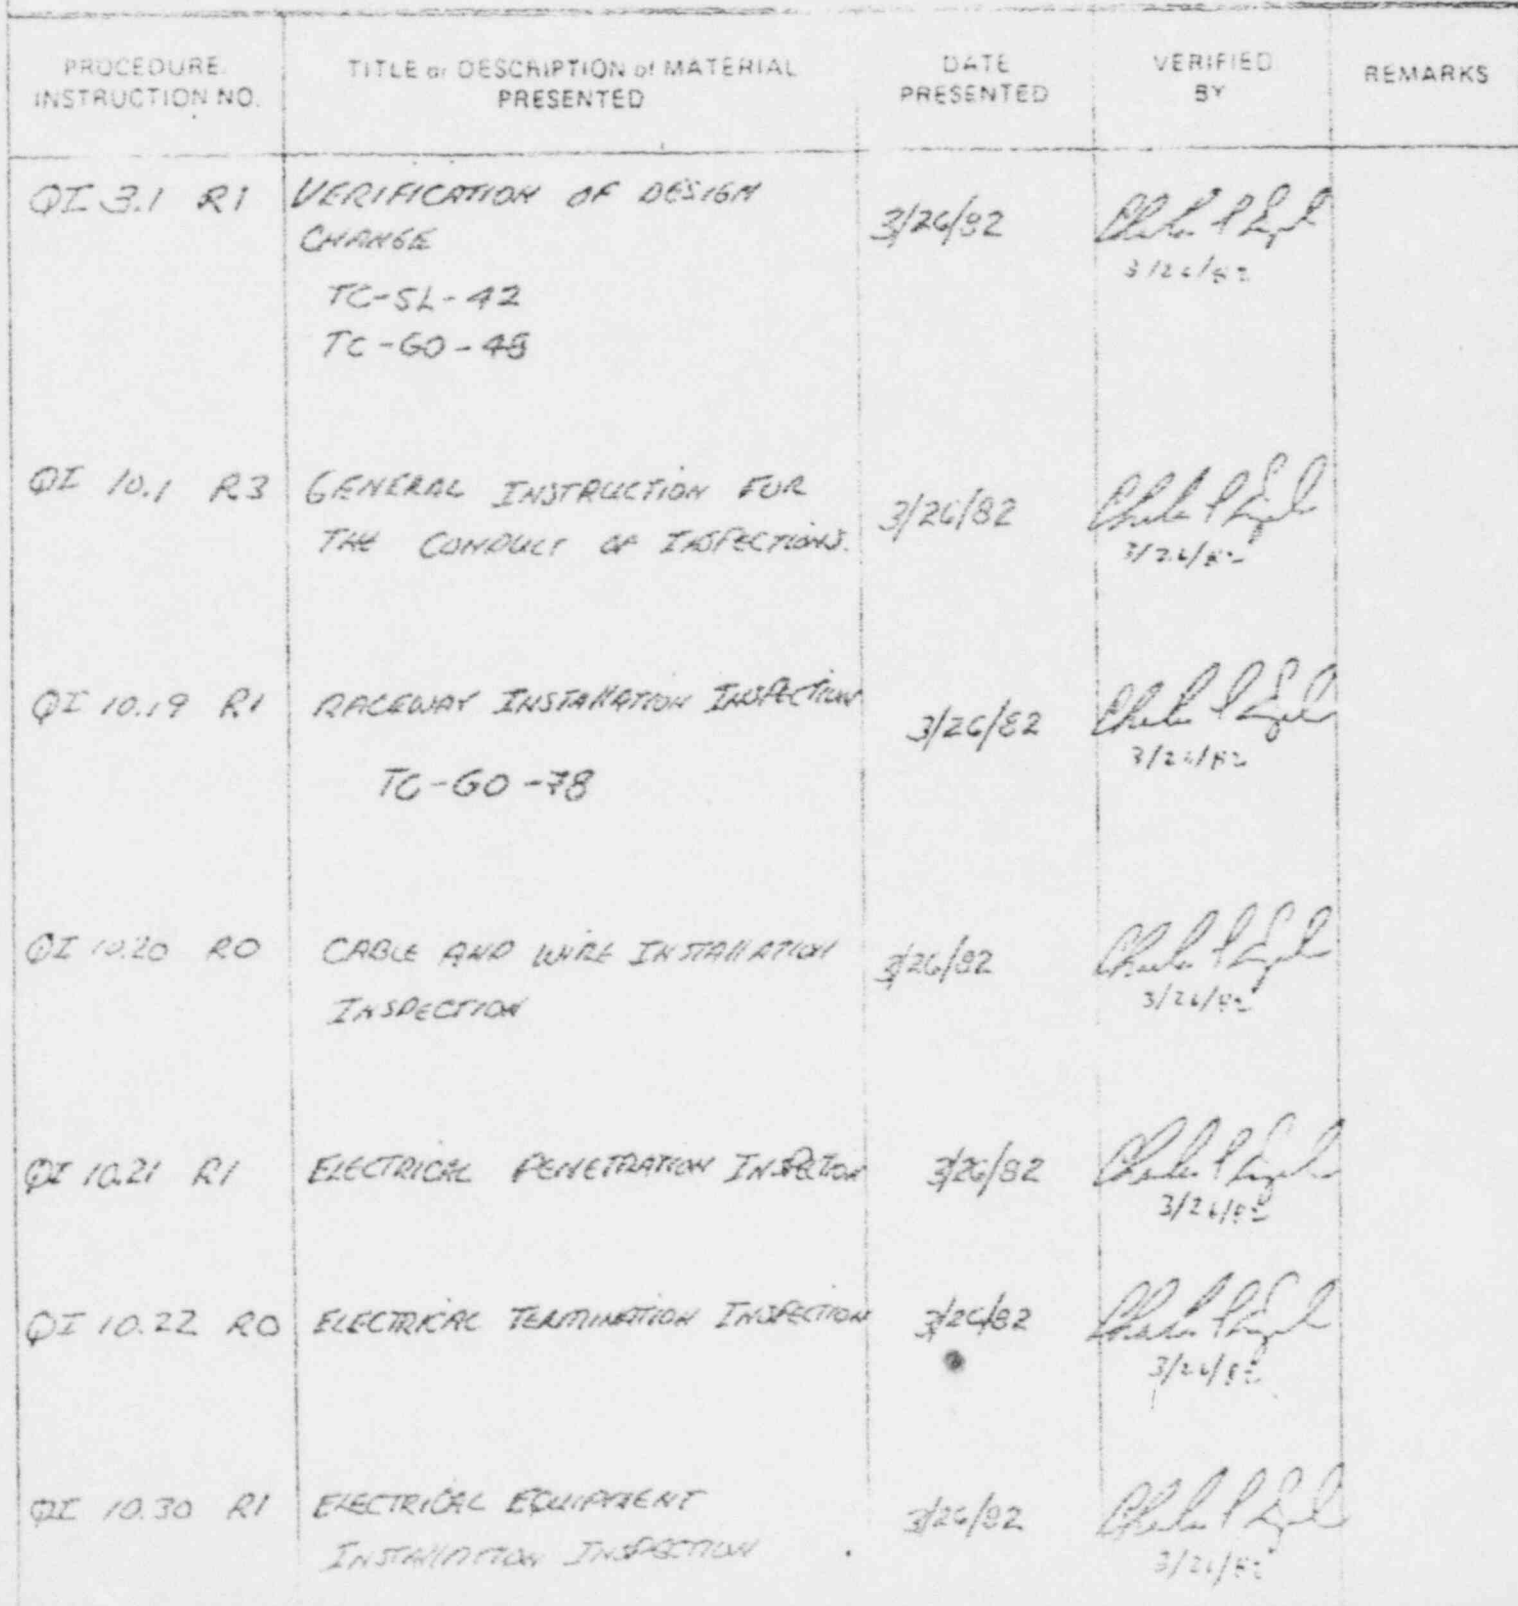 PROCEDURE
INSTRUCTION NO.
TITLE or DESCRIPTION of MATERIAL
PRESENTED
DATE
PRESENTED
VERIFIED
BY
REMARKS
QI 3.1 R1
VERIFICATION OF DESIGN
CHANGE
TC-SL-42
TC-GO-48
3/26/82
3/26/82
QI 10.1 R3
GENERAL INSTRUCTION FOR
THE CONDUCT OF INSPECTIONS.
3/26/82
3/26/82
QI 10.19 R1
RACEWAY INSTALLATION INSPECTION
TC-GO-78
3/26/82
3/26/82
QI 10.20 R0
CABLE AND WIRE INSTALLATION
INSPECTION
3/26/82
3/26/82
QI 10.21 R1
ELECTRICAL PENETRATION INSPECTION
3/26/82
3/26/82
QI 10.22 R0
ELECTRICAL TERMINATION INSPECTION
3/26/82
3/26/82
QI 10.30 R1
ELECTRICAL EQUIPMENT
INSTALLATION INSPECTION
3/26/82
3/26/82